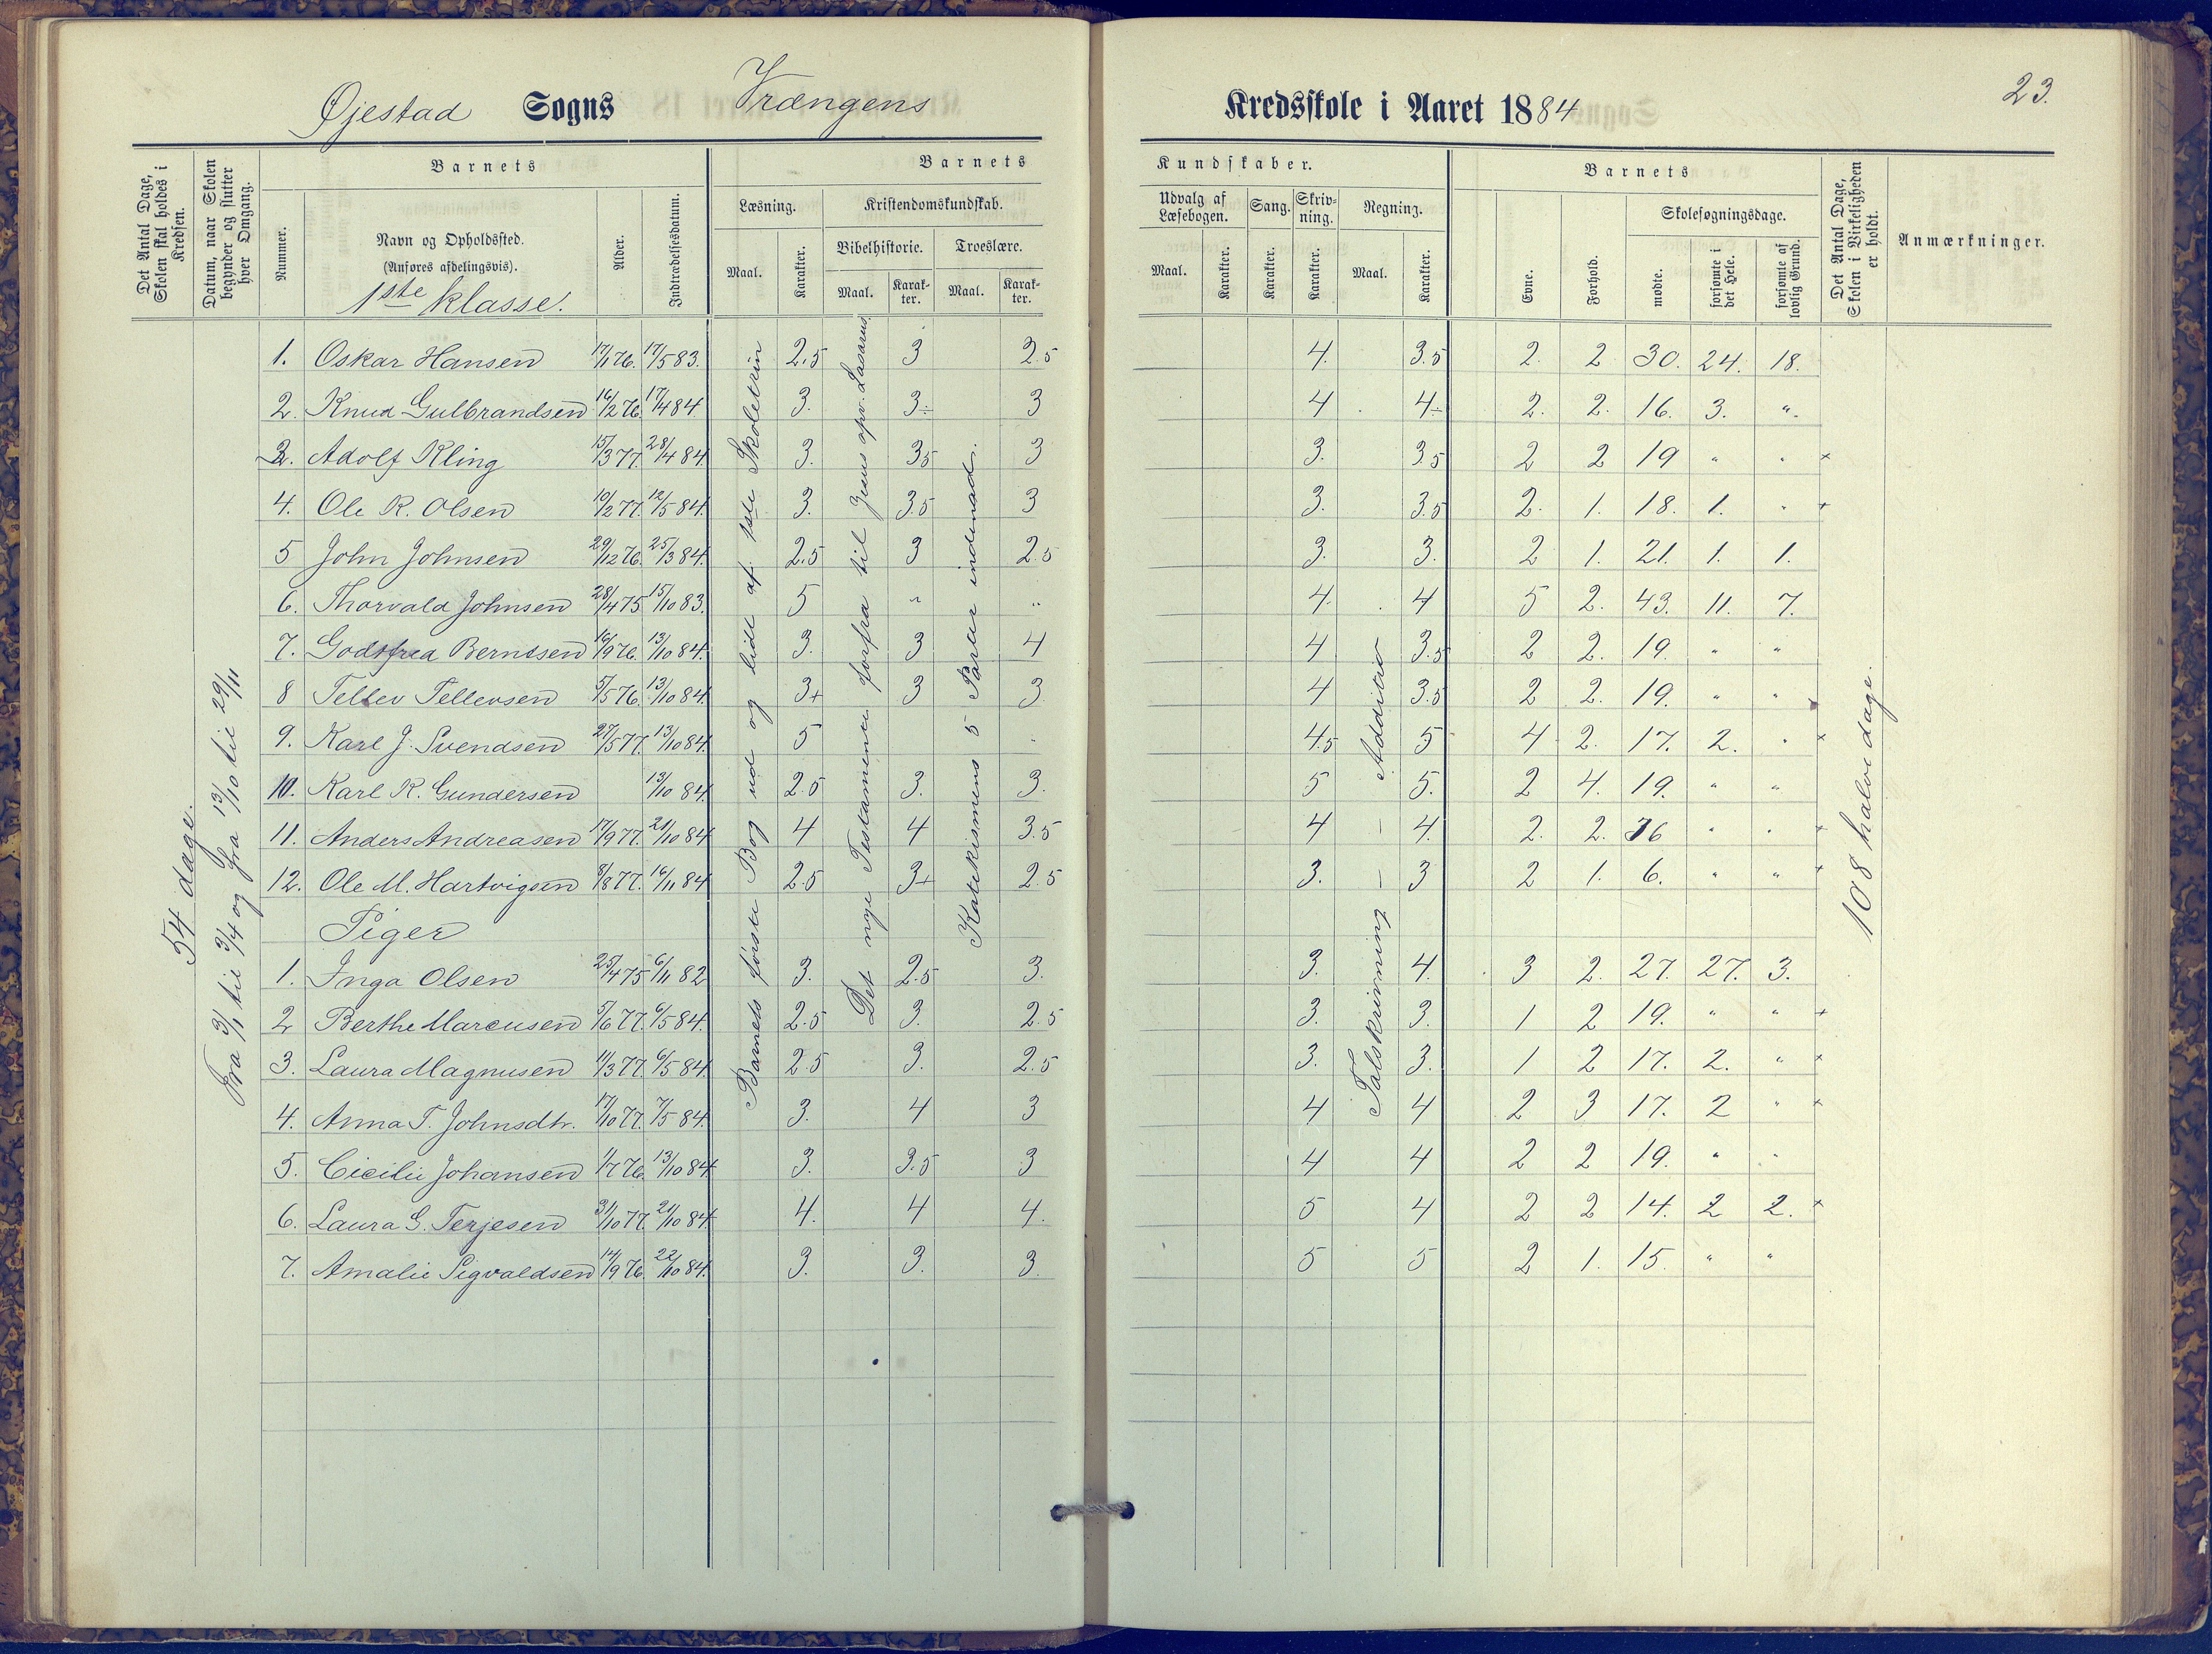 Øjestad Sogns Vrængens Kredsskole i Aaret 1884
23.
Det Antal Dage, Skolen skal holdes i Kredsen.
Datum, naar Skolen begynder og slutter hver Omgang.
Barnets
Nummer.
Navn og Opholdssted.
(Anføres afdelingsvis).
1ste klasse.
Alder.
Indtrædelsesdatum.
Barnets Kundskaber.
Læsning.
Maal.
Karakter.
Kristendomskundskab.
Bibelhistorie.
Maal.
Karakter.
Troeslære.
Maal.
Karakter.
Udvalg af Læsebogen.
Maal.
Karakter.
Sang.
Karakter.
Skrivning.
Karakter.
Regning.
Maal.
Karakter.
Barnets
Evne.
Forhold.
Skolesøgningsdage.
mødte.
forsømte i det Hele.
forsømte af lovlig Grund.
Det Antal Dage, Skolen i Virkeligheden er holdt.
Anmærkninger.
54 dage.
Fra 3/1 til 3/4 og fra 13/10 til 29/11
Barnets første Bog ud og lidt af 1ste Skoletrin
Det nye Testamente forfra til Jesus opv. Lasarus
Katekismens 5 Parter indenad.
Talskrivning — Addition
108 halve dage.
1. Oskar Hansen 17/1 76. 17/5 83. 2.5 3 2.5 4. 3.5 2. 2 30. 24. 18.
2. Knud Gulbrandsen 16/2 76. 17/4 84 3. 3÷ 3 4 4÷ 2. 2. 16. 3. ".
3. Adolf Kling 15/3 77. 28/4 84. 3. 3.5 3 3. 3.5 2 2 19 " " ×
4. Ole R. Olsen 10/2 77. 12/5 84. 3. 3.5 3 3. 3.5 2. 1. 18. 1. " +
5 John Johnsen 29/12 76. 25/3 84. 2.5 3 2.5 3. 3. 2 1. 21. 1. 1.
6. Thorvald Johnsen 28/4 75 15/10 83. 5 " " 4. 4 5 2. 43. 11. 7.
7. Godtfred Berntsen 16/9 76. 13/10 84. 3. 3 4 4 3.5 2 2. 19. " "
8 Tellev Tellevsen 5/5 76. 13/10 84. 3+ 3 3. 4 3.5 2 2. 19. " "
9. Karl J. Svendsen 27/5 77. 13/10 84. 5 4.5 5 4 2. 17. 2. " ×
10. Karl K. Gundersen 13/10 84. 2.5 3. 3. 5 5. 2 4. 19. " "
11. Anders Andreasen 17/9 77. 21/10 84 4 4 3.5 4 4. 2. 2. 16 " " +
12. Ole M. Hartvigsen 8/8 77. 16/11 84 2.5 3+ 2.5 3. 3 2 1. 6. " " +
Piger
1. Inga Olsen 25/4 75 6/11 82 3. 2.5 3. 3. 4. 3 2. 27. 27. 3.
2 Berthe Marcusen 5/6 77. 6/5 84. 2.5 3. 2.5 3. 3. 1 2 19. " " +
3. Laura Magnusen 11/3 77. 6/5 84. 2.5 3. 2.5 3. 3. 1 2 17. 2. " +
4. Anna T. Johnsdtr. 17/10 77. 7/5 84. 3. 4 3 4 4 2 3 17. 2 " +
5. Cicilie Johansen 1/7 76. 13/10 84 3. 3.5 3 4 4 2 2 19. " "
6. Laura G. Terjesen 31/10 77. 21/10 84. 4. 4 4. 5 4 2 2 14. 2 2. +
7. Amalie Sigvaldsen 14/9 76. 22/10 84. 3. 3. 3. 5 5 2 1. 15. " "